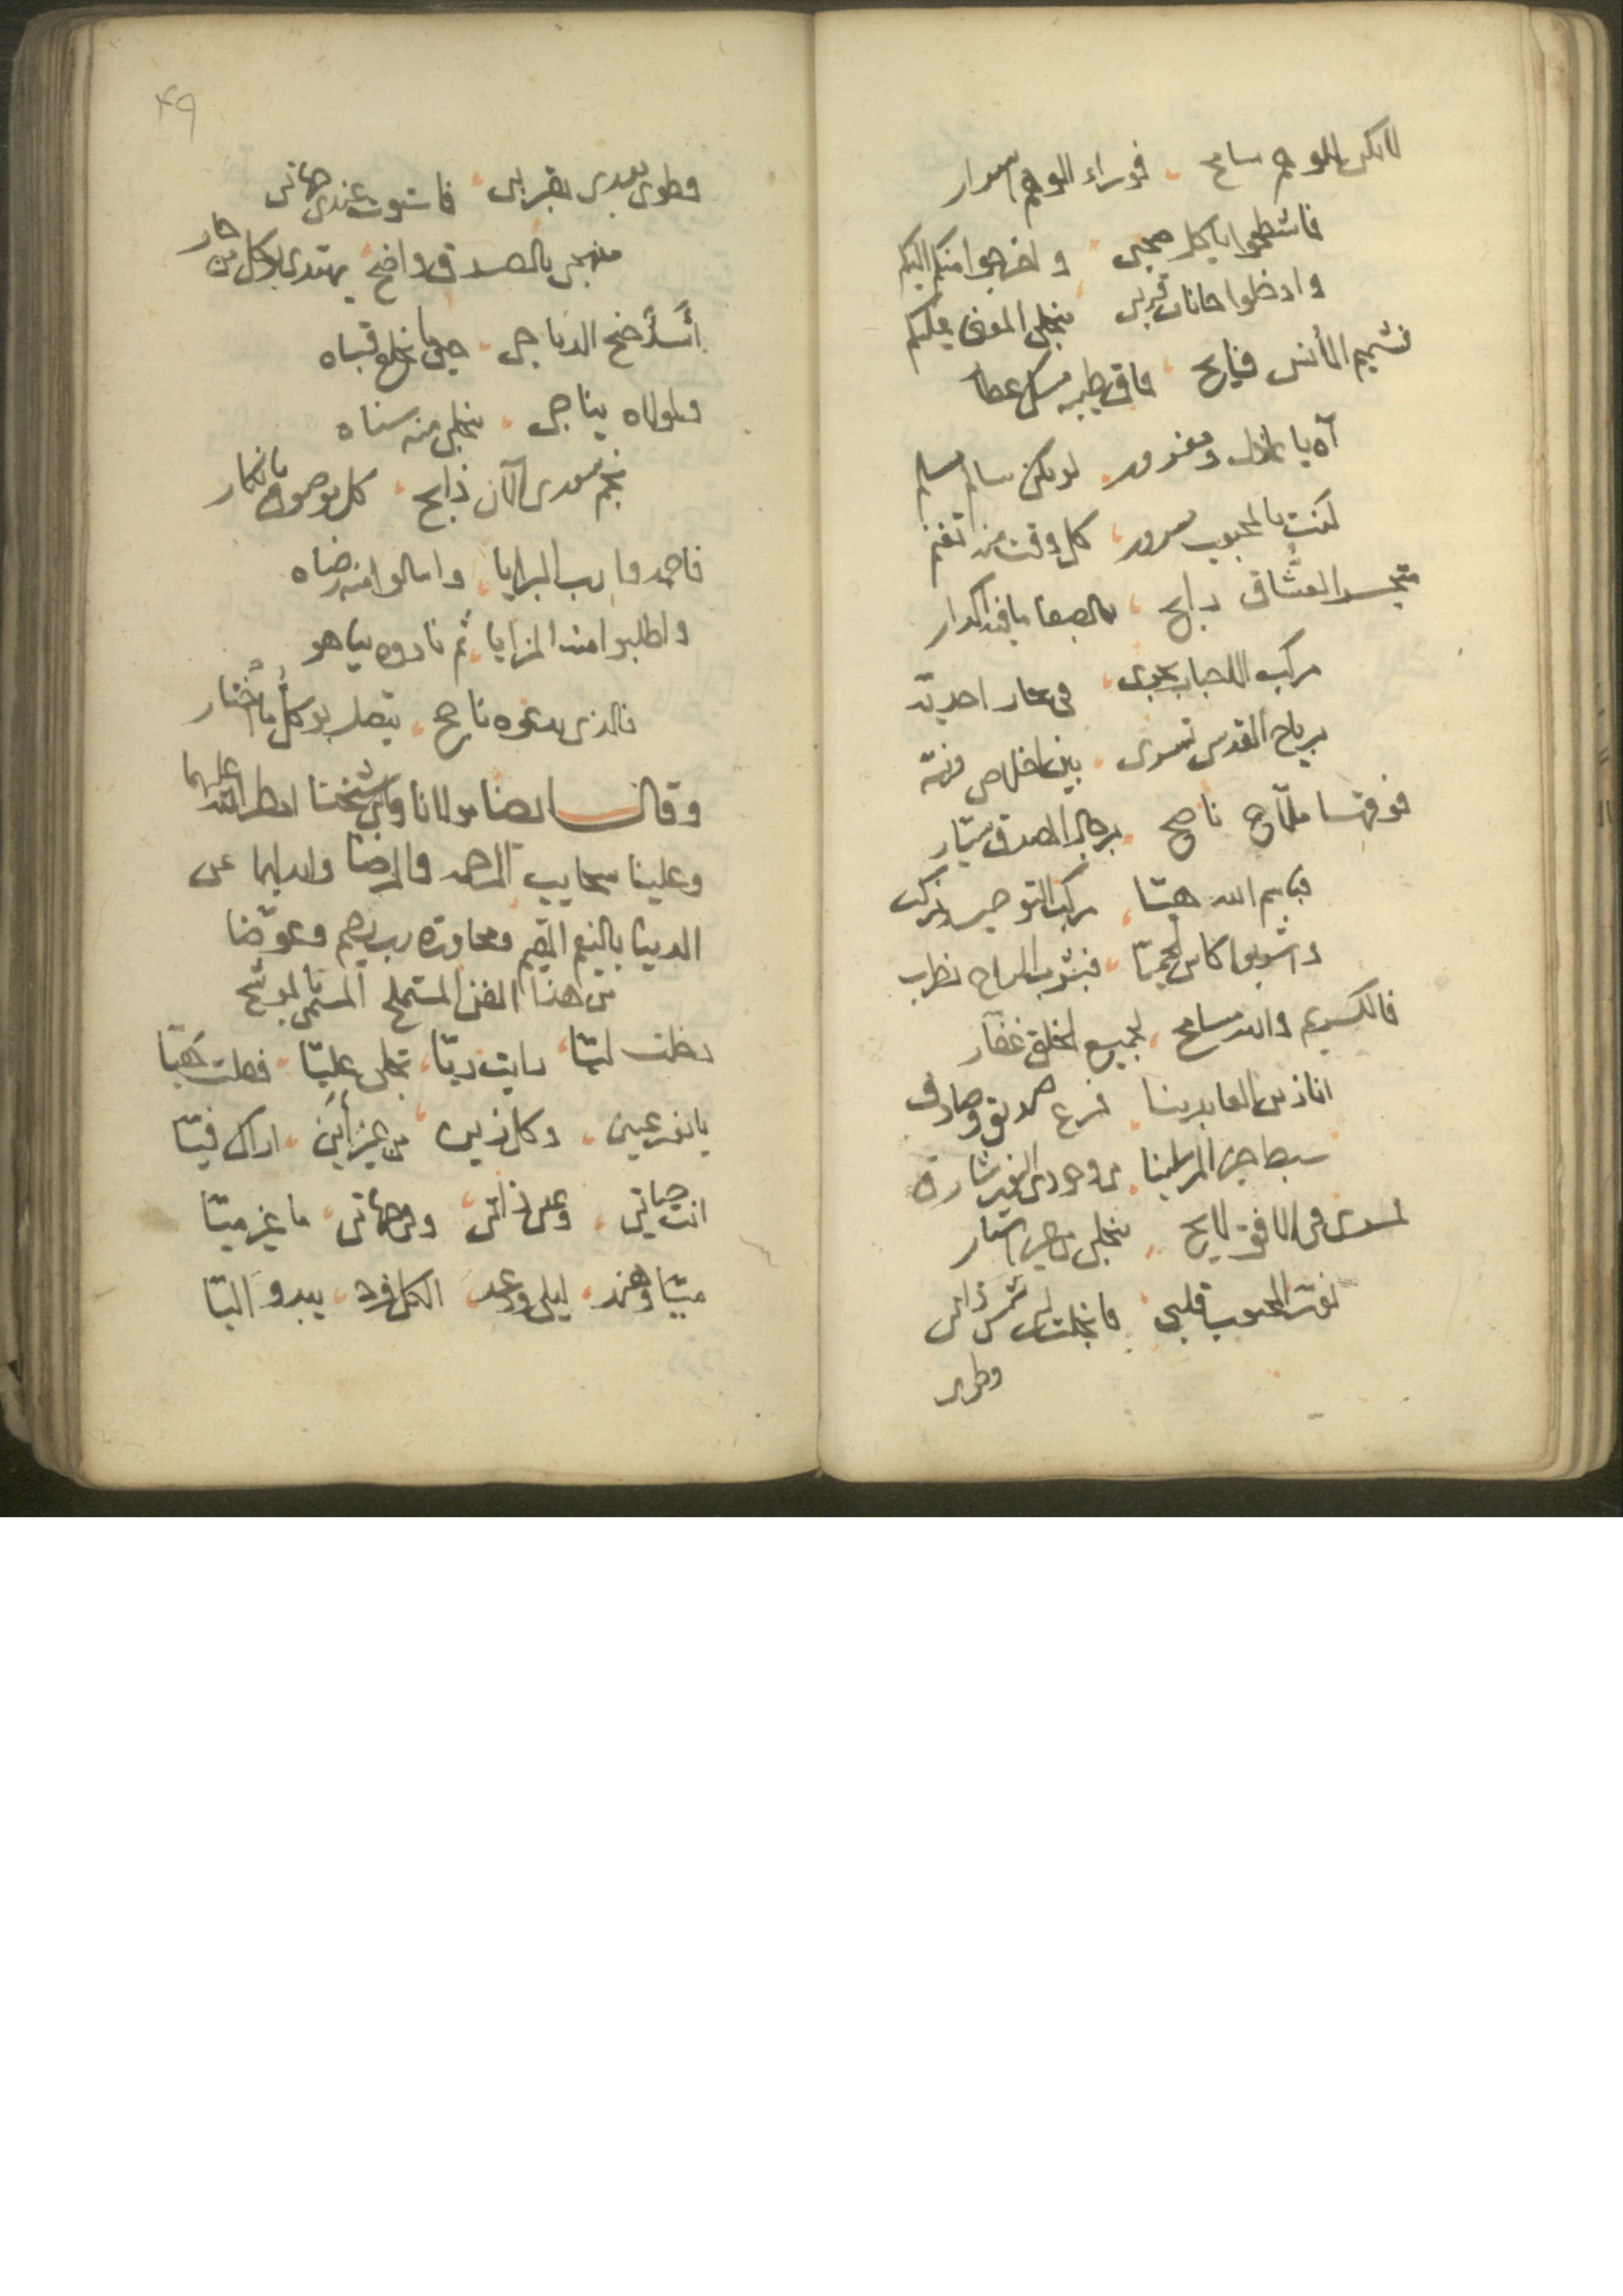 لا تكن للوهم سامح فوراء الوهم اسرار
فاشطحوا يا كل صحبي واخرجوا منكم اليكم
وادخلوا حانات قربي ينجلي المعنى عليكم
فشميم الأنس فايح فاق طيبه مسك عطار
آه يا عاذل ومغرور لو تكن سالم مسلم
كنت بالمحبوب مسرور كل وقت منه تغنم
متجر العشاق رابح بالصفا يا في اكدار
مركب الاحباب تجري في بحار احدية
برياح القدس تسري بين اخلاص ونية
فوقها ملّاح ناصح برجال الصدق سيّار
فباسم الله هيّا مركب التوحيد نركب
واشربوا كاس الحميّا فبشرب الراح نطرب
فالكريم والله مسامح لجميع الخلق غفّار
انا زين العابدينا فرع صديق وصادق
سبط خير المرسلينا
في الافق لايح ينجلي من غير استار
المحبوب قلبي فانجلت لي شمس ذاتي
وطوى
٤٩
وطوى بعدي بقربي فاستوت عندي جهاتي
منهجي بالصدق واضح يهتدي به كل من حار
أسد جنح الدياجي حين يخلع قباه
ولمولاه يناجي ينجلي منه سناه
نجم سعدي الآن ذابح كل موصوم بانكار
فاحمدوا رب البرايا واسالوا منه رضاه
واطلبوا منه المزايا ثم نادوه يا هو
فالذي يدعوه ناجح يتصل به كل ما اختار
وقال ايضا مولانا وابن شيخنا امطر الله عليهما
وعلينا سحايب الرحمه والرضا وابدلهما عن
الدينا بالنعيم المقيم ومجاورة رب رحيم وعوّضنا
من هذا الفن المستملح المسمى بالموشح
دخلت ليّا رايت ريّا تجلى عليّا فصلت هيّا
يا نور عيني وكل زيني من غير أين اراك فيّا
انت حياتي وعين ذاتي وفي جهاتي ما غير ميّا
ميّا وهند ليلى ودعد الكل فرد يبدو اليّا